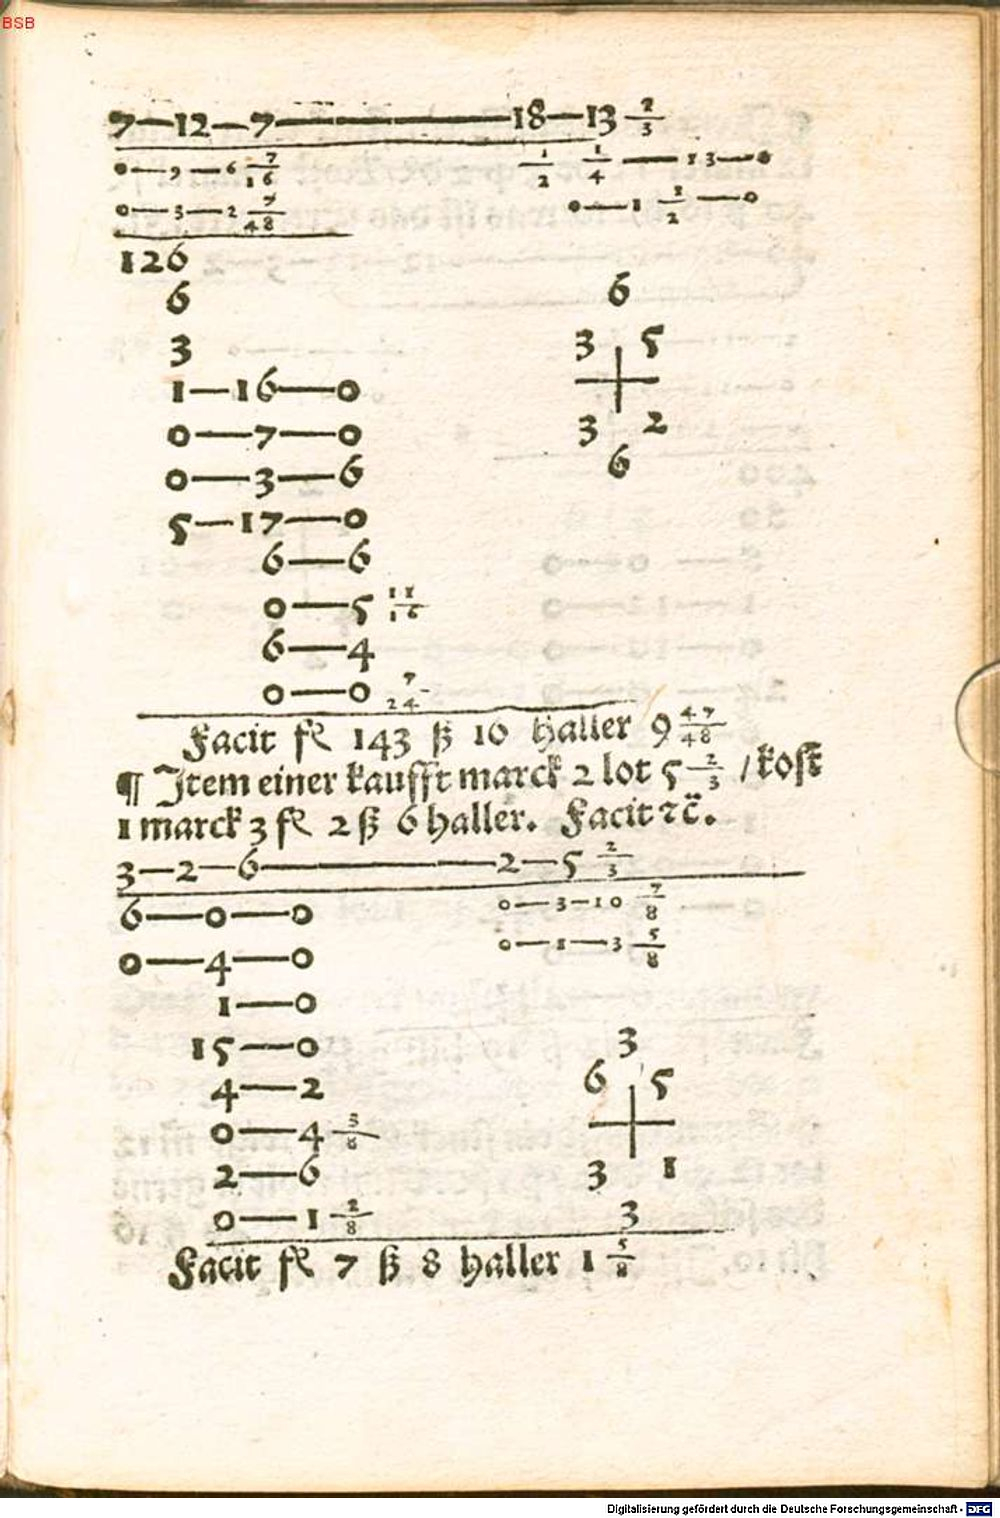 BSB
7—12—7———18—13 2/3
0—9—6 7/16 1/2 1/4—13—0
0—3—2 7/48 0—1 1/2—0
126
6 6
3 3 5
1—16—0
0—7—0 3 2
0—3—6 6
5—17—0
6—6
0—5 11/16
6—4
0—0 7/24
Facit fl 143 ß 10 Haller 9 47/48
¶ Item einer kaufft marck 2 lot 5 2/3 / kost
1 marck 3 fl 2 ß 6 haller. Facit ⁊c̈.
3—2—6———2—5 2/3
6—0—0 0—3—10 7/8
0—4—0 0—1—3 5/8
1—0
15—0 3
4—2 6 5
0—4 3/8
2—6 3 1
0—1 2/8 3
Facit fl 7 ß 8 haller 1 5/8
Digitalisierung gefördert durch die Deutsche Forschungsgemeinschaft - DFG